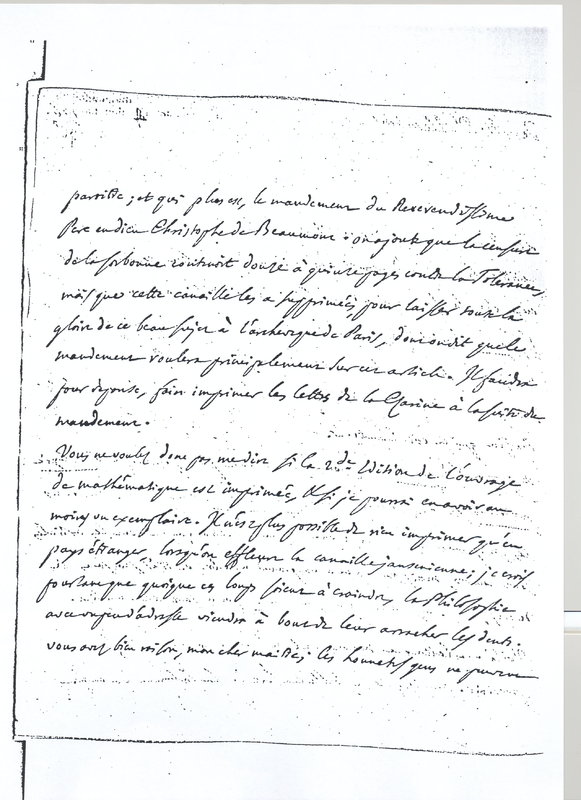 paroitre ; et qui plus est, le mandement du Reverendissime
Pere en dieu Christophe de Beaumont : on ajoute que la censure
de la Sorbonne contenoit douze à quinze pages contre la Tolerance,
mais que cette canaille les a supprimées pour laisser toute la
gloire de ce beau sujet à l'archeveque de Paris, dont on dit que le
mandement roulera principalement sur cet article. Il faudra
pour reponse, faire imprimer les lettres de la Czarine à la suite du
mandement.
Vous ne voulez donc pas me dire si la 2.de Edition de l'ouvrage
de mathématique est imprimée, & si je pourrai en avoir au
moins un exemplaire. Il n'est plus possible de rien imprimer qu'en
pays étranger, lorsqu'on effleure la canaille janseniene ; je crois
pourtant que quoique ces loups soient à craindre, la Philosophie
avec un peu d'adresse viendra à bout de leur arracher les dents.
vous avez bien raison, mon cher maitre ; les honnetes gens ne peuvent